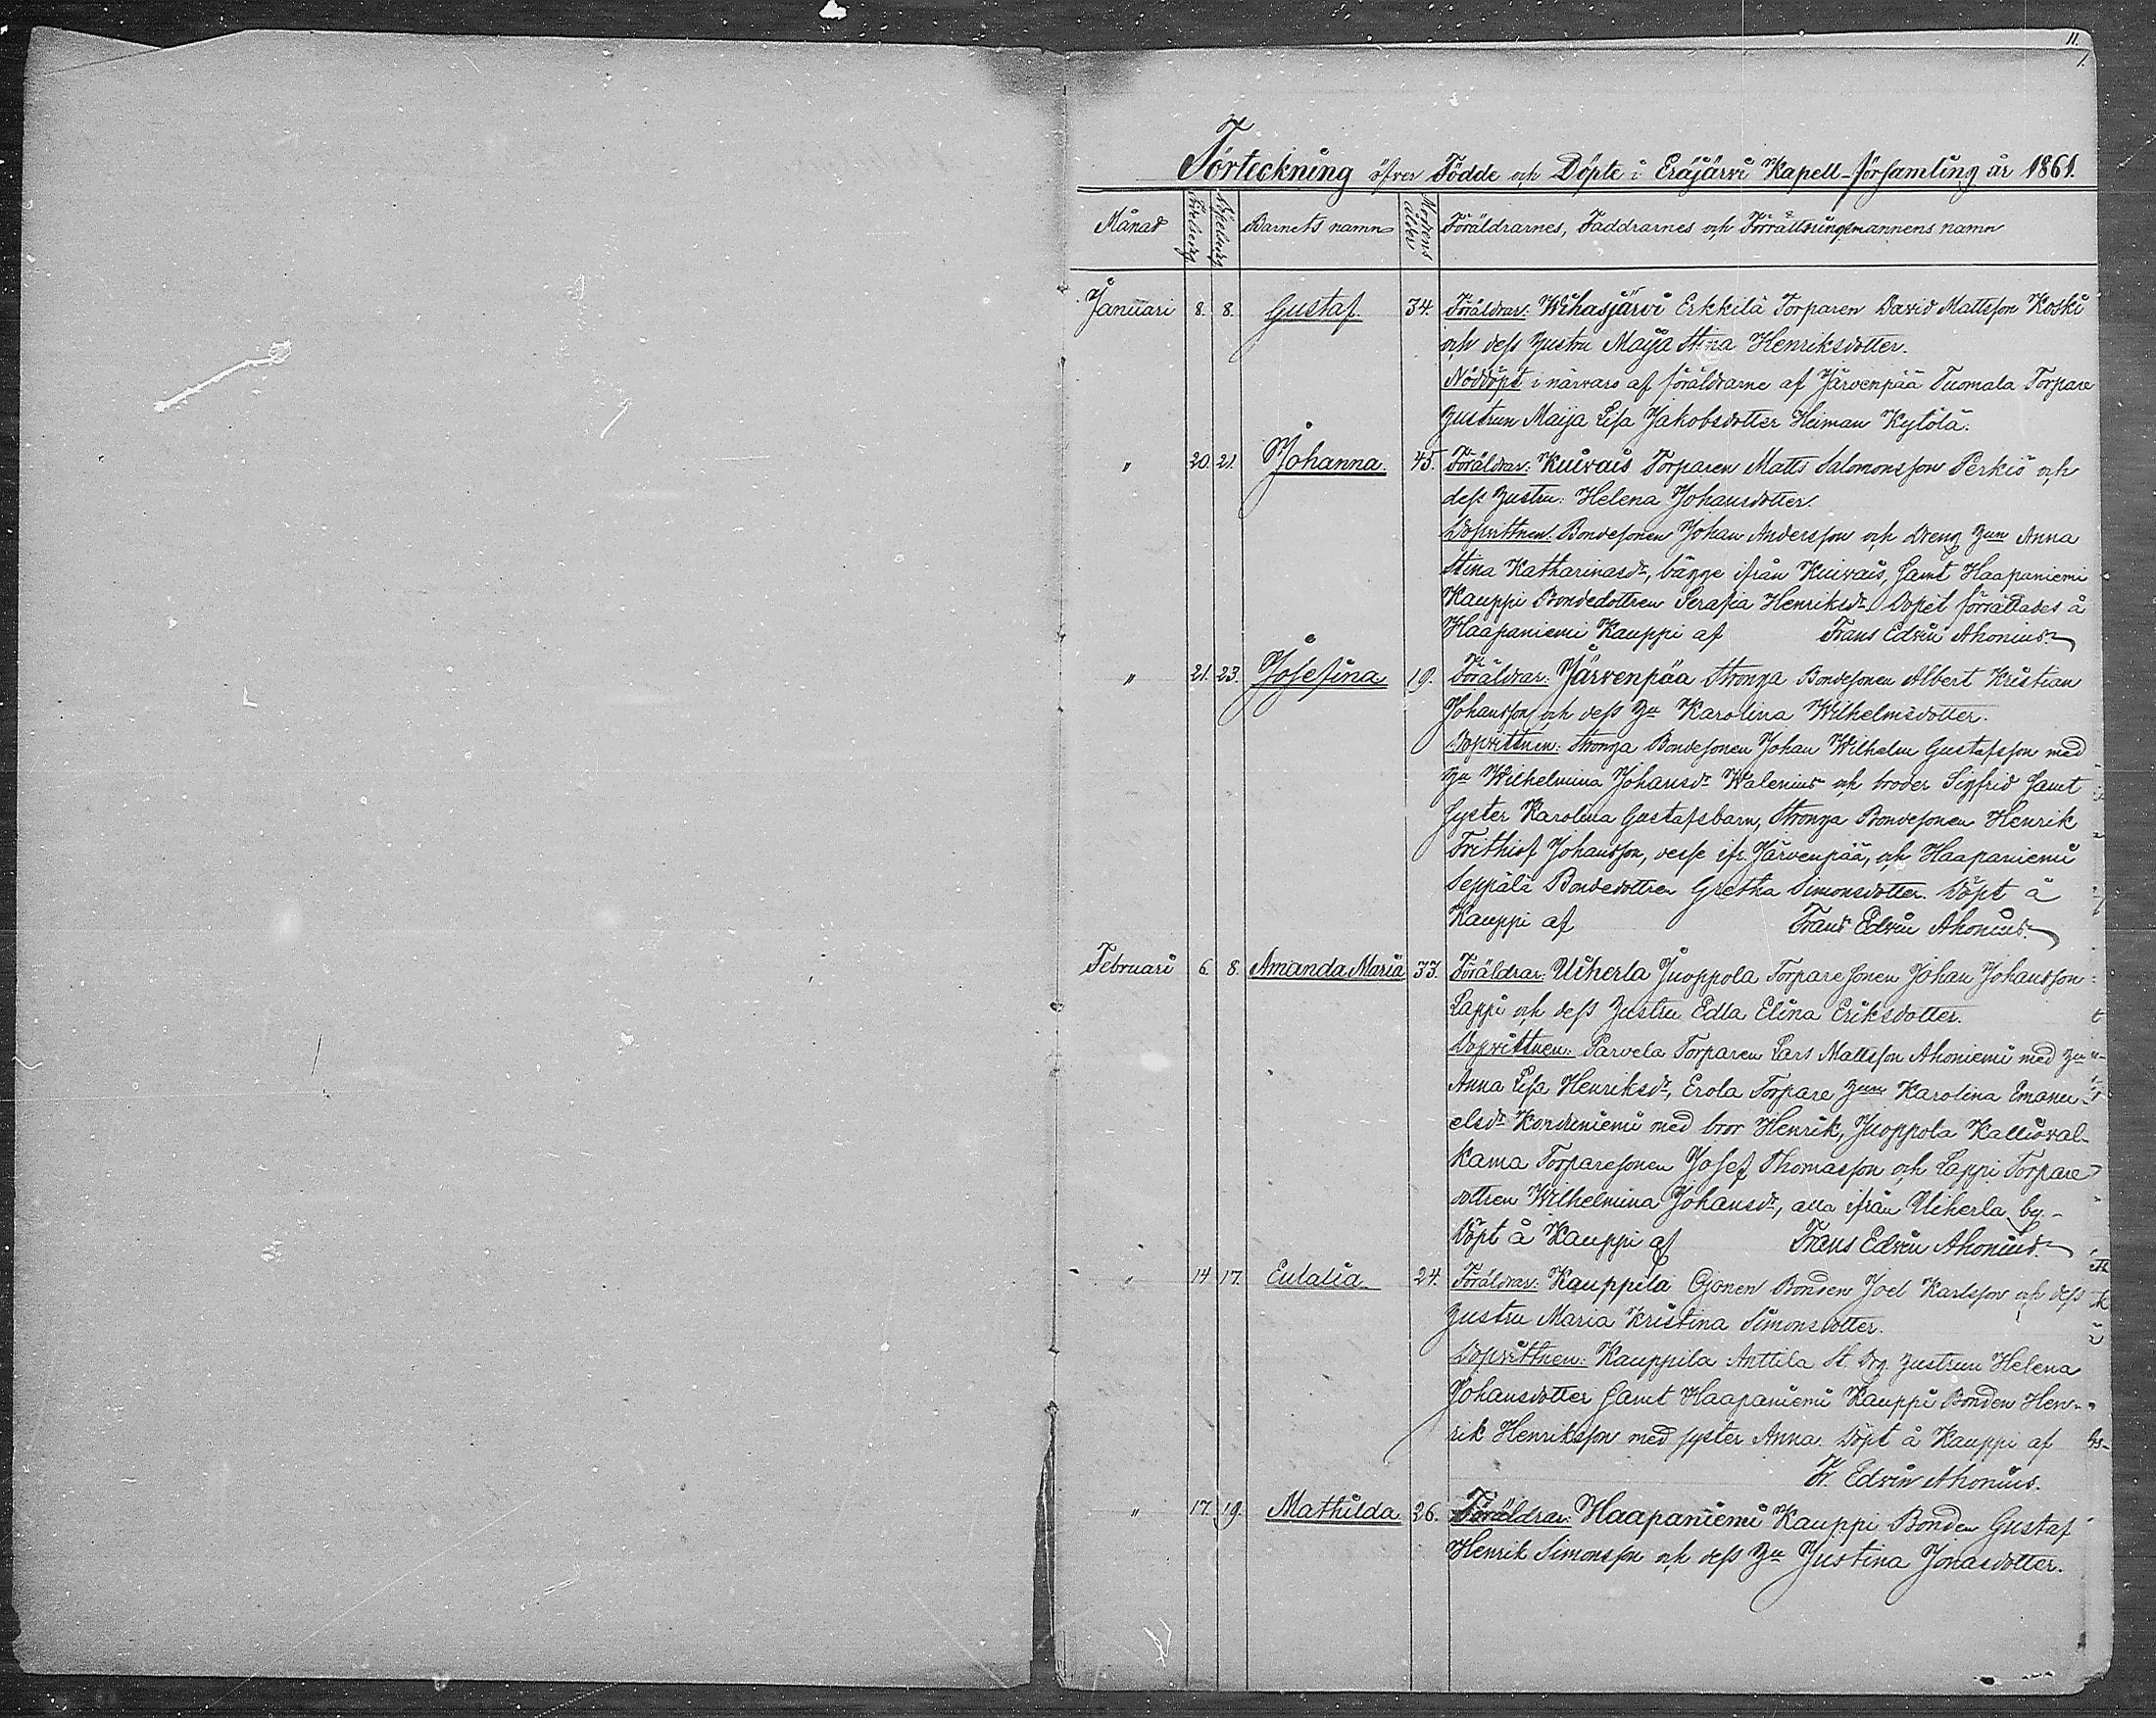 11.
1.
Förteckning öfver Födde och Döpte i Eräjärvi Kapell-församling år 1861.
Månad Födelsedg Döpelsedg Barnets namn Modrens ålder Föräldrarnes, Faddrarnes och Förrättningsmannens namn
Januari 8. 8. Gustaf. 34. Föräldrar: Wihasjärvi Erkkilä Torparen David Mattsson Koski
och dess hustru Maja Stina Henriksdotter.
Nöddöpt i närvaro af föräldrarne af Järvenpää Tuomala Torpare
hustrun Maija Lisa Jakobsdotter Heiman Kytölä.
" 20. 21. Johanna 45. Föräldrar: Kuivais Torparen Matts Salomonsson Perkiö och
dess hustru: Helena Johansdotter.
Dopvittnen: Bondesonen Johan Andersson och Dreng hun Anna
Stina Katharinasdr, bägge ifrån Kuivais, samt Haapaniemi
Kauppi Bondedottren Serafia Henriksdr. Dopet förrättades å
Haapaniemi Kauppi af Frans Edvin Ahonius.
" 21. 23. Josefina 19. Föräldrar: Järvenpää Stronga Bondesonen Albert Kristian
Johansson och dess hu Karolina Wilhelmsdotter.
Dopvittnen: Stronga Bondesonen Johan Wilhelm Gustafsson med
hu Wilhelmina Johansdr Walenius och broder Sigfrid samt
syster Karolina Gustafsbarn, Stronga Bondesonen Henrik
Frithiof Johansson, desse ifr. Järvenpää, och Haapaniemi
Seppälä Bondedottren Gretha Simonsdotter. Döpt å
Kauppi af Frans Edvin Ahonius.
Februari 6. 8. Amanda Maria 33. Föräldrar: Uiherla Juoppola Torparesonen Johan Johansson
Lappi och dess hustru Edla Elina Eriksdotter.
Dopvittnen: Parvela Torparen Lars Mattsson Ahoniemi med hu
Anna Lisa Henriksdr, Erola Torpare hun Karolina Emanu-
elsdr Korduniemi med bror Henrik, Juoppola Kallioval-
kama Torparesonen Josef Thomasson och Lappi Torpare
dottren Wilhelmina Johansdr, alla ifrån Uiherla by.-
Döpt å Kauppi af Frans Edvin Ahonius.
" 14 17. Eulalia 24. Föräldrar: Kauppila Ojonen Bonden Joel Karlsson och dess
hustru Maria Kristina Simonsdotter.
Dopvittnen: Kauppila Anttila St. Drg. hustrun Helena
Johansdotter samt Haapaniemi Kauppi Bonden Hen-
rik Henriksson med syster Anna. Döpt å Kauppi af
Fr. Edvin Ahonius.
" 17. 19. Mathilda 26. Föräldrar: Haapaniemi Kauppi Bonden Gustaf
Henrik Simonsson och dess hu Justina Jonasdotter.